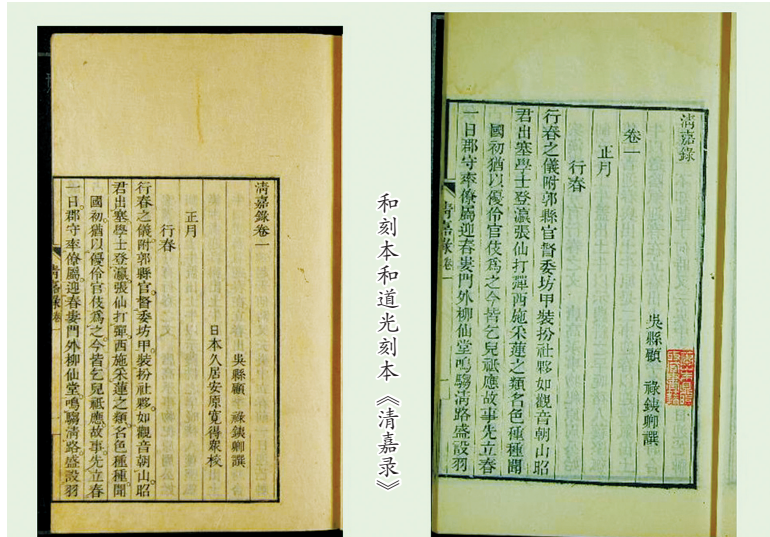 清嘉錄
吳縣顧　祿銕卿撰
卷一
正月
行春
行春之儀附郭縣官督委坊甲裝扮社夥如觀音朝山昭
君出塞學士登瀛張仙打彈西施采蓮之類名色種種聞
國初猶以優伶官伎爲之今皆乞兒祗應故事先立春
一日郡守率僚屬迎春婁門外柳仙堂鳴騶清路盛設羽
清嘉錄 卷一
和刻本和道光刻本《清嘉录》
清嘉錄卷一
吳縣顧　祿銕卿撰
日本久居安原寬得衆校
正月
行春
行春之儀附郭縣官督委坊甲裝扮社夥如觀音朝山昭
君出塞學士登瀛張仙打彈西施采蓮之類名色種種聞
國初猶以優伶官伎爲之今皆乞兒祗應故事先立春
一日郡守率僚屬迎春婁門外柳仙堂鳴騶清路盛設羽
清嘉錄 卷一